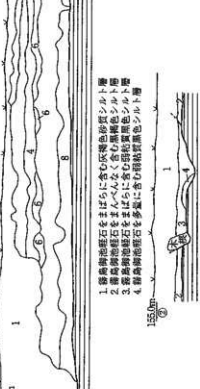 1
6
4
6
8
6
6
1. 霧島御池軽石をまばらに含む灰褐色砂質シルト層
2. 霧島御池軽石をまんべんなく含む黒褐色シルト層
3. 霧島御池軽石をまばらに含む弱粘質黒色シルト層
4. 霧島御池軽石を多量に含む弱粘質黒色シルト層
155.0m
②
1
2
木根
3
4
2